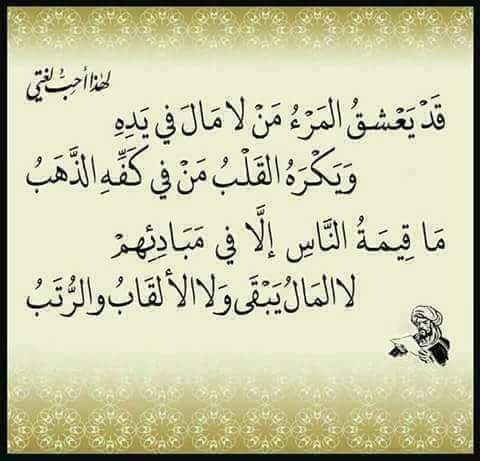 لهذا أحب لغتي
قَدْ يَعْشقُ المَرْءُ مَنْ لا مَالَ في يَدِهِ
وَيَكْرَهُ القَلْبُ مَنْ في كَفِّهِ الذَّهَبُ
مَا قِيمَةُ النَّاسِ إلَّا في مَبَادِئِهِمْ
لا المَالُ يَبْقَى وَلا الألقَابُ والرُّتَبُ